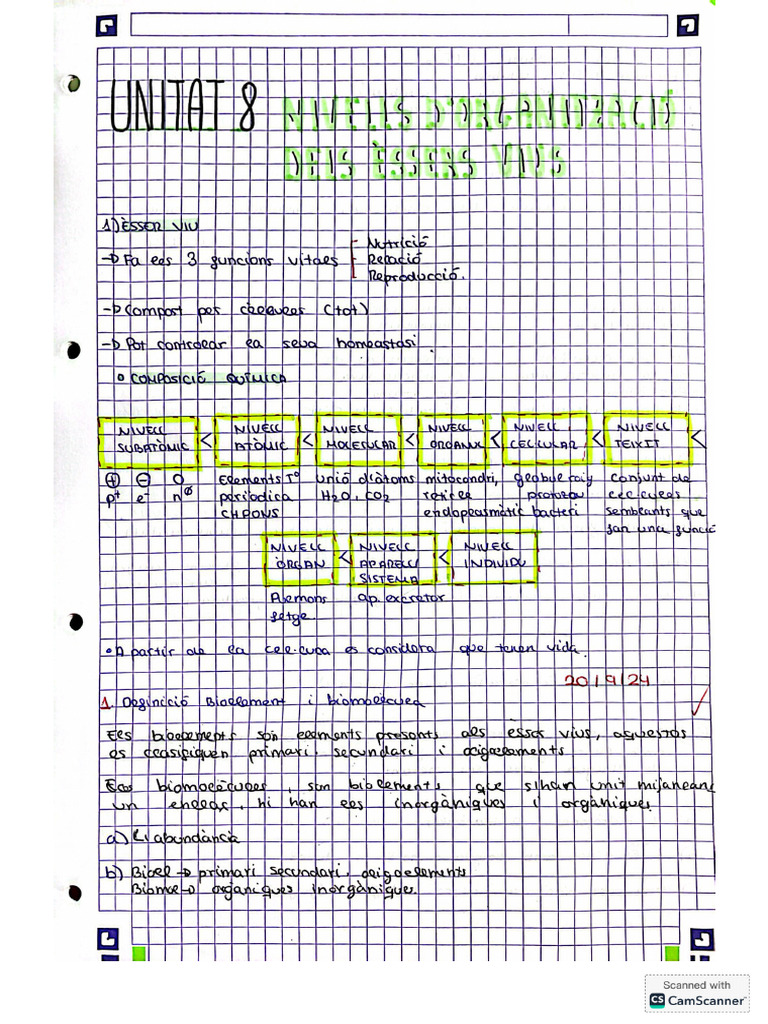 UNITAT 8 NIVELLS D'ORGANITZACIÓ
DELS ÈSSERS VIUS
1) ÈSSER VIU
→ Fa les 3 funcions vitales
Nutrició
Relació
Reproducció.
→ Compost per cèl·lules (tot)
→ Pot controlar la seva homeastasi.
o COMPOSICIÓ QUÍMICA
NIVELL SUBATÒMIC < NIVELL ATÒMIC < NIVELL MOLECULAR < NIVELL ORGANUL < NIVELL CEL·LULAR < NIVELL TEIXIT <
+ - o
p+ e- nø
Elements Tº
periodica
CHPONS
Unió d'àtoms
H2O, CO2
mitocondri,
reticle
endoplasmàtic
protozou
bacteri
conjunt de
cèl·lules
semblants que
fan una funció
NIVELL ÒRGAN < NIVELL APARELL/SISTEMA < NIVELL INDIVIDU
Fetge.
ap. excretor
• A partir de la cèl·lula es considera que tenen vida.
20/9/24
1. Definició Bioelement i biomolècula
Els bioelements són elements presents als èsser vius, aquestos
es classifiquen primari, secundari i oligoelements
biomolècules, son bioelements que s'han unit mijançant
un enllaç, hi han les inorgàniques i orgàniques.
a) L'abundància
b) Bioel → primari secundari, oligoelements
Biomol → organiques inorgàniques.
Scanned with
CS CamScanner